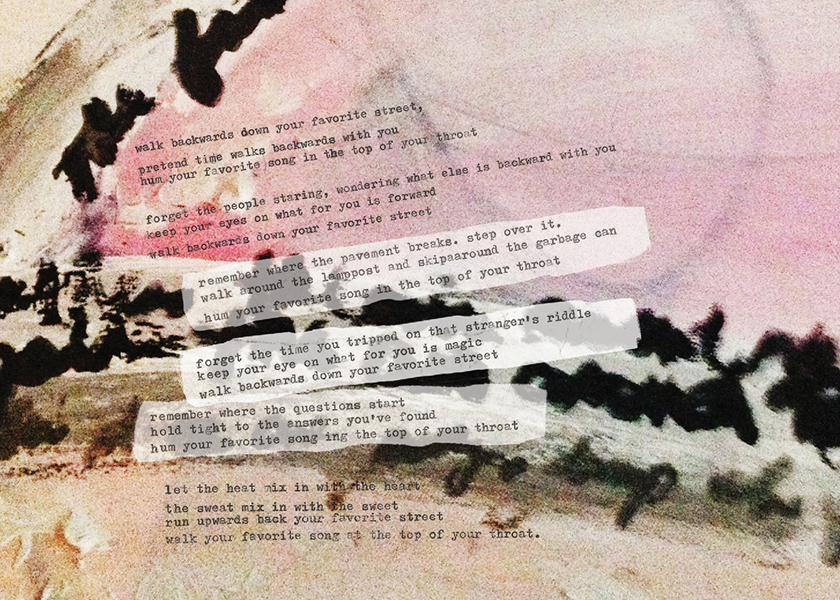 walk backwards down your favorite street,
pretend time walks backwards with you
hum your favorite song in the top of your throat
forget the people staring, wondering what else is backward with you
keep your eyes on what for you is forward
walk backwards down your favorite street
remember where the pavement breaks. step over it.
walk around the lamppost and skipaaround the garbage can
hum your favorite song in the top of your throat
forget the time you tripped on that stranger's riddle
keep your eye on what for you is magic
walk backwards down your favorite street
remember where the questions start
hold tight to the answers you've found
hum your favorite song ing the top of your throat
let the heat mix in with the heart
the sweat mix in with the sweet
run upwards back your favorite street
walk your favorite song at the top of your throat.